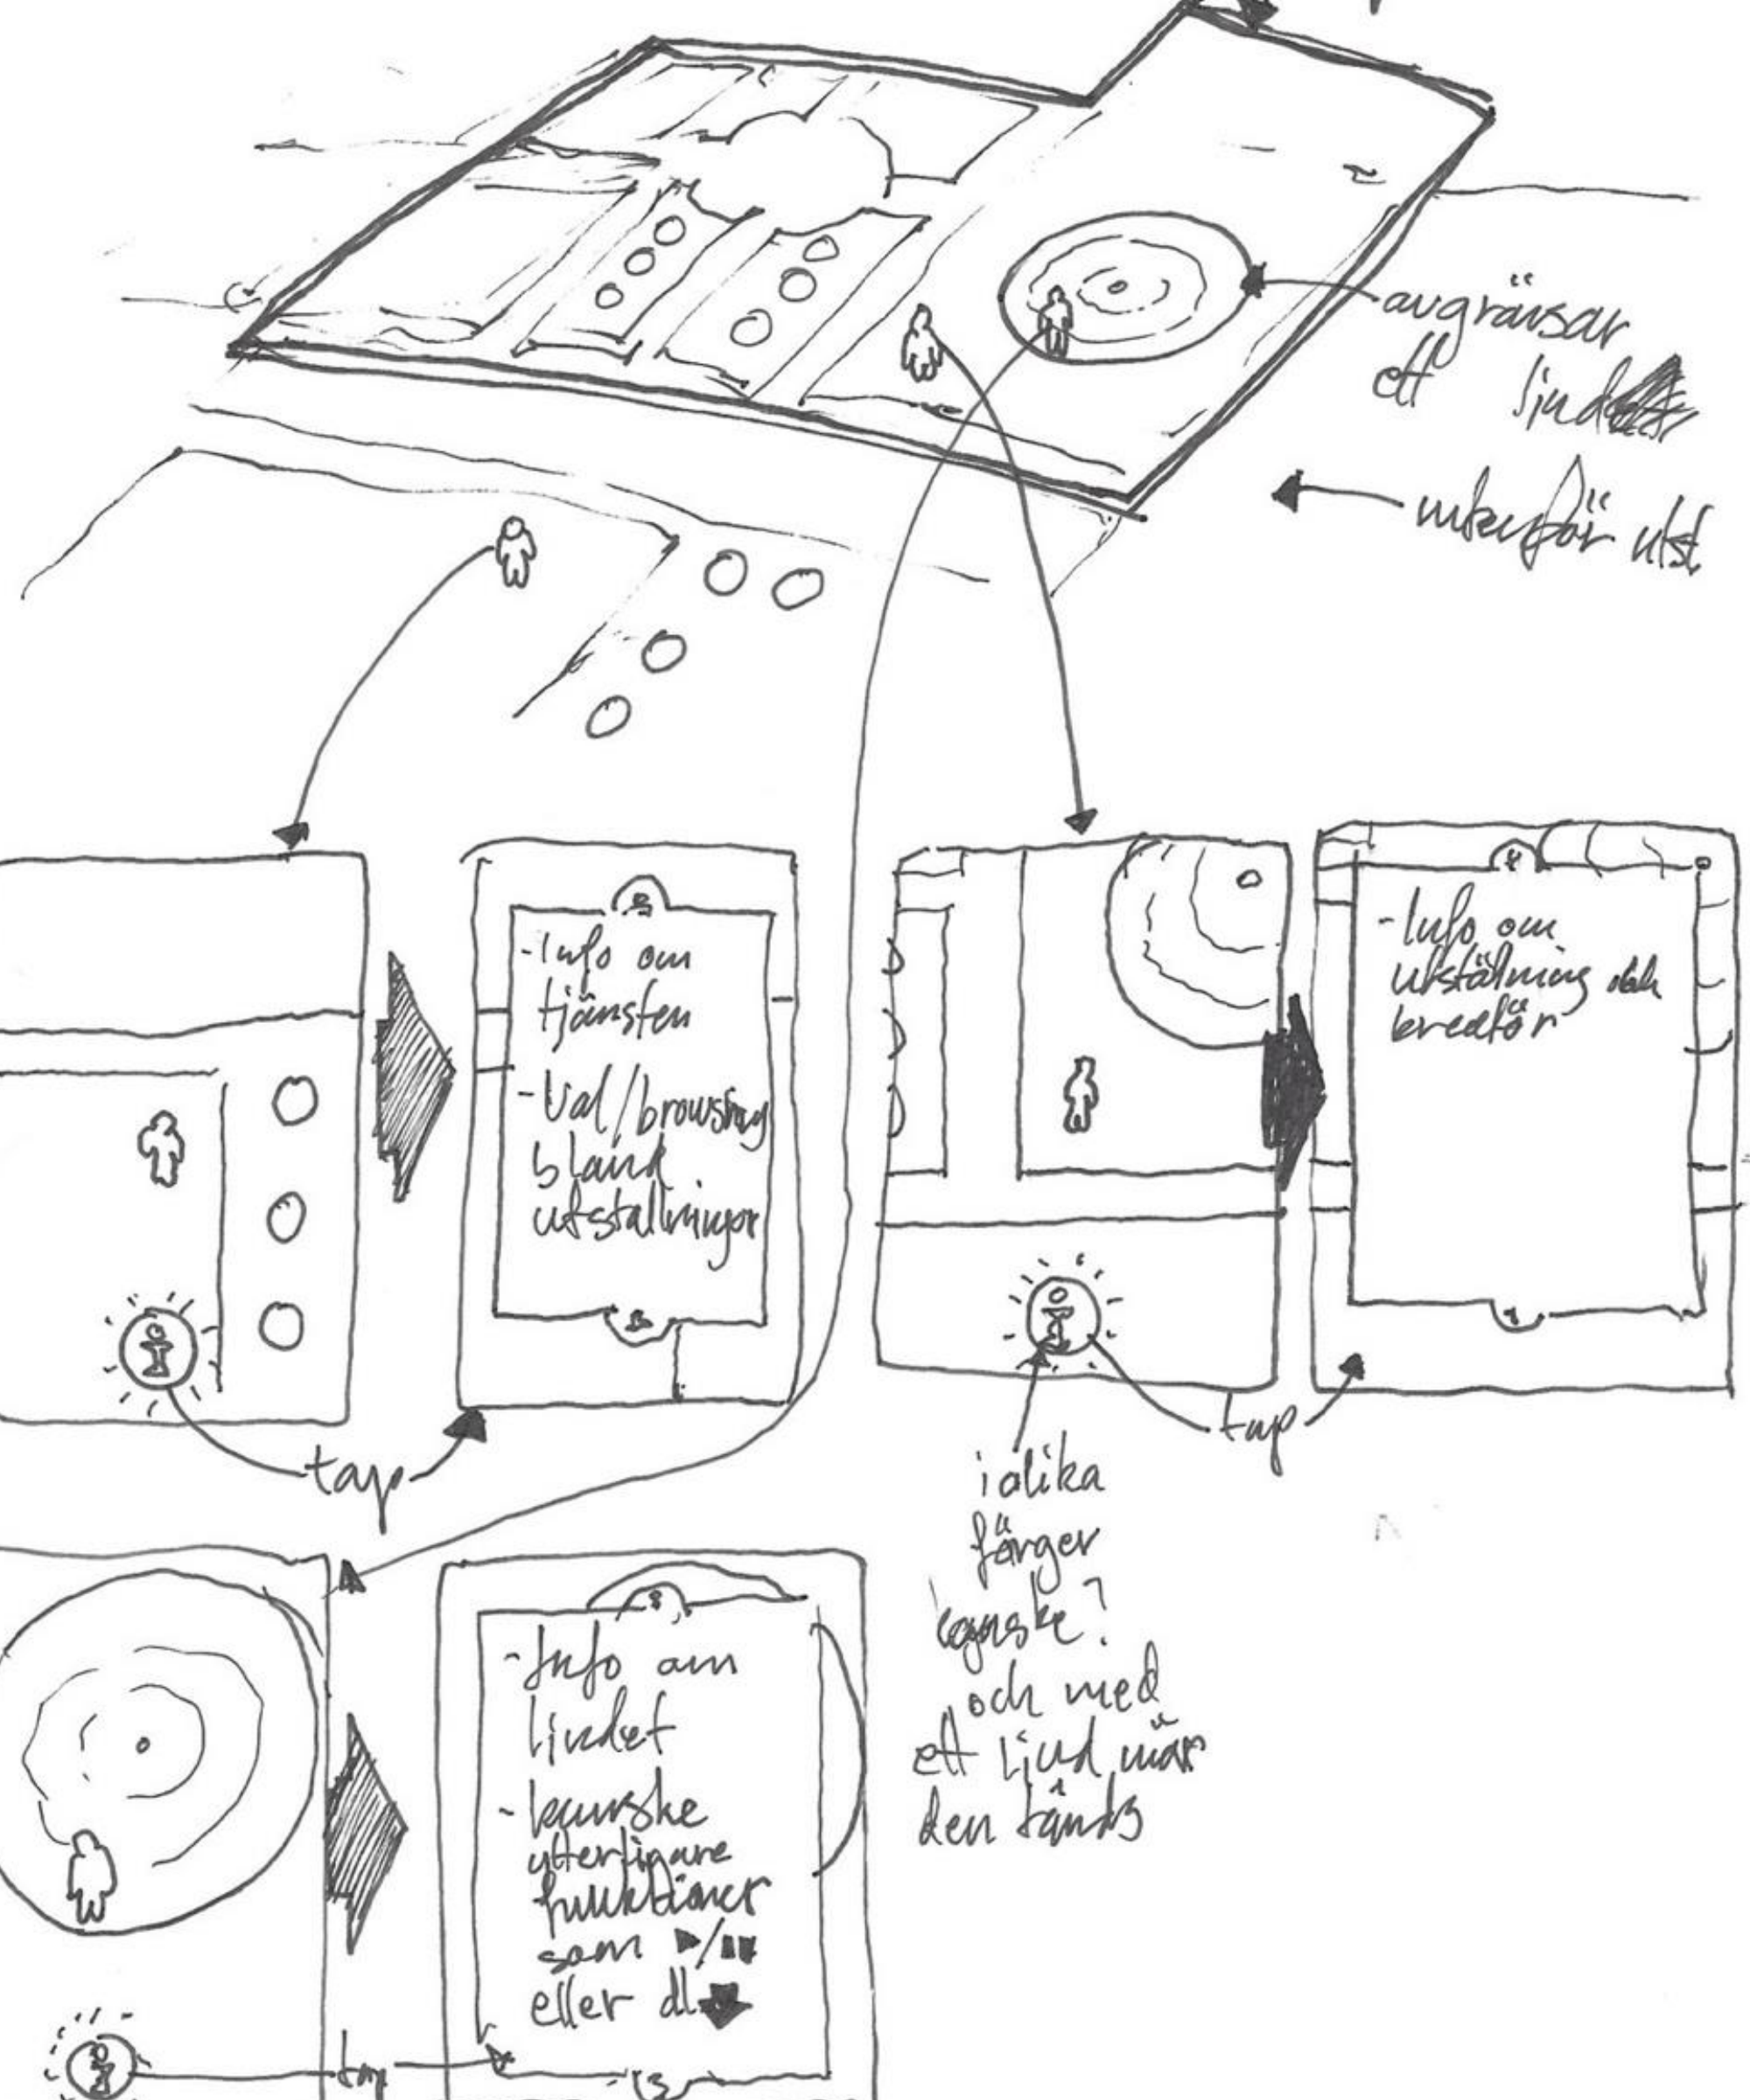 avgränsar
ett ljud
utanför utst.
- Info om
tjänsten
- Val/browsing
bland
utställningar
- Info om
utstälning och
kreatör
tap
tap
i olika
färger
kanske?
och med
ett ljud när
den tänds
- Info om
ljudet
- kanske
ytterligare
funktioner
som ▶/▮▮
eller dl
tap